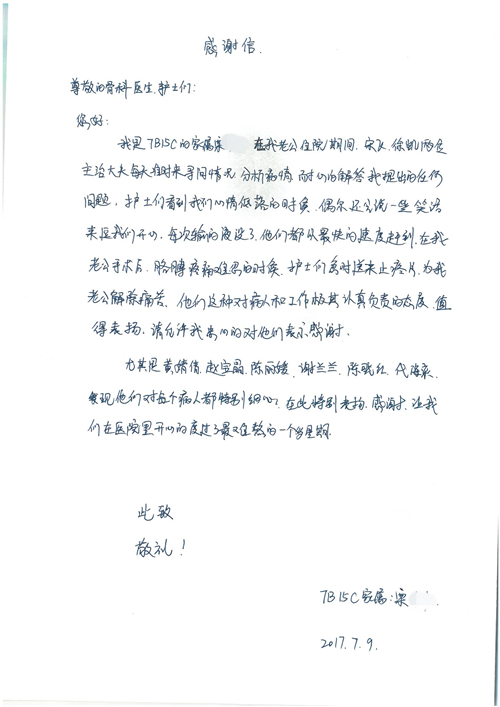 感谢信.
尊敬的骨科医生、护士们:
您好:
我是7B15C的家属宋 在我老公住院期间, 宋飞、徐凯两位
主治大夫每天准时来寻问情况, 分析病情, 耐心的解答我提出的任何
问题, 护士们看到我们心情低落的时候, 偶尔还会说一些笑话
来逗我们开心, 每次输的液没了, 他们都以最快的速度赶到, 在我
老公手术后, 胳膊疼痛难忍的时候, 护士们及时送来止疼片, 为我
老公解除痛苦, 他们这种对病人和工作极其认真负责的态度, 值
得表扬, 请允许我衷心的对他们表示感谢.
尤其是黄倩倩、赵宝晶、陈丽媛、谢兰兰、陈晓红、代海泉,
发现他们对每个病人都特别细心, 在此特别表扬、感谢, 让我
们在医院里开心的度过了最难熬的一个多星期.
此致
敬礼!
7B15C家属:栗
2017.7.9.